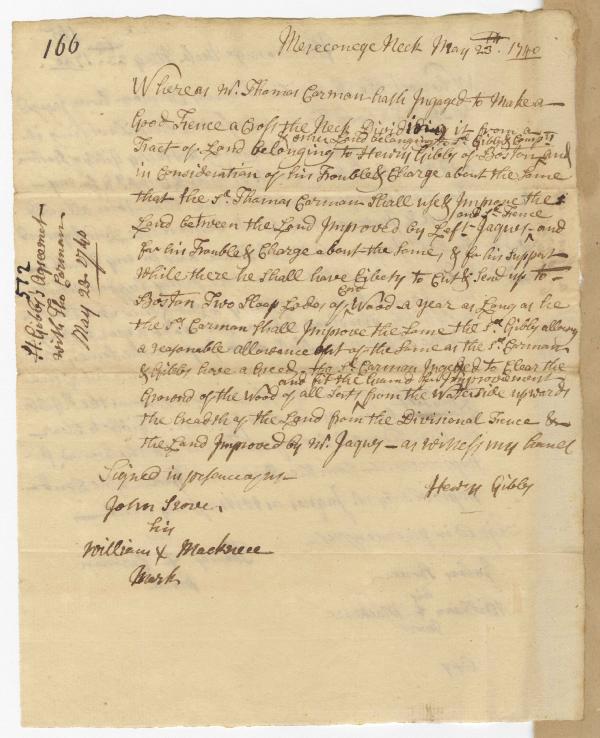 166
Mereconege Neck May 23th. 1740
Whereas mr. Thomas Carman hath Ingaged to Make a
Good Fence a Cross the Neck Divididing it from a
other Land belonging to sd. Gibbs & Compa
Tract of Land belonging to Henry Gibbs of Boston and
in Consideration of his Trouble & Charge about the Same
that the sd. Thomas Carman Shall use & Improve the
and sd. Fence
Land between the Land Improved by Left. Jaques and
for his Trouble & Charge about the Same, & for his Support
While there he Shall have Liberty to Cut & Send up to
Cord
Boston Two Sloop Lodes of Wood a year as Long as he
the sd. Carman Shall Improve the Same the sd. Gibbs allowing
a reasonable allowance out of the Same as the sd. Carman
& Gibbs have a Greed, the sd. Carman Ingaged to Clear the
and fit the Ground for Improvement
Ground of the Wood of all Sorts from the Waterside upwards
the breadth of the Land from the Divisional Fence &
the Land Improved by mr. Jaques - as witness my hand
Henry Gibbs
Signed in presence of us
John Stover
his
William X Macknece
Mark
572
H. Gibbs's Agreemet
with Tho Carman
May 23 1740